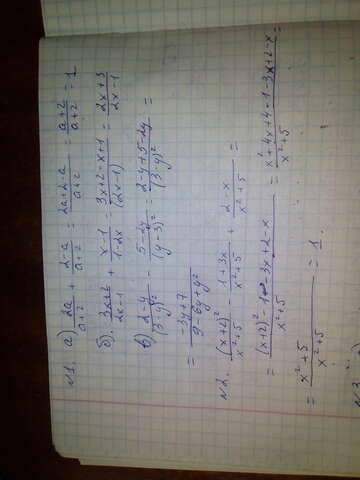 N1. а) 2a/(a+2) + (2-a)/(a+2) = (2a+2-a)/(a+2) = (a+2)/(a+2) = 1
б). (3x+2)/(2x-1) + (x-1)/(1-2x) = (3x+2-x+1)/(2x-1) = (2x+3)/(2x-1)
в) (2-y)/(3-y)² - (5-2y)/(y-3)² = (2-y+5-2y)/(3-y)² =
= (-3y+7)/(9-6y+y²)
N2. (x+2)²/(x²+5) - (1+3x)/(x²+5) + (2-x)/(x²+5) =
= ((x+2)²-1-3x+2-x)/(x²+5) = (x²+4x+4-1-3x+2-x)/(x²+5) =
= (x²+5)/(x²+5) = 1.
N3.